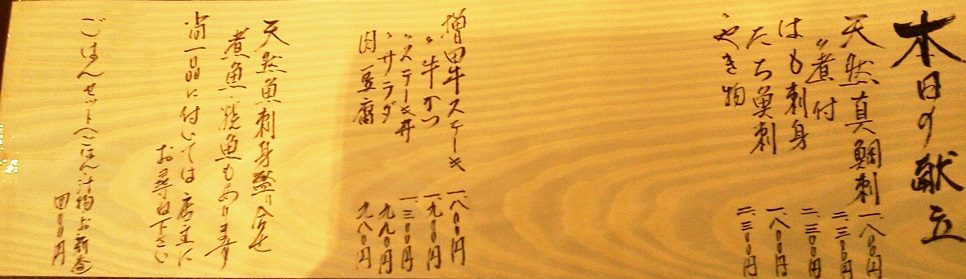 本日の献立
天然真鯛刺 一、八〇〇円
〃 煮付 二、三〇〇円
はも刺身 二、三〇〇円
たち魚刺 一、八〇〇円
〃 やき物 二、三〇〇円
増田牛ステーキ 一、八〇〇円
〃 牛かつ 一、九〇〇円
〃 ステーキ丼 一、三〇〇円
〃 サラダ 九八〇円
肉豆腐 九八〇円
天然魚刺身盛り合せ
煮魚、焼魚もあります
尚一品に付いては店主に
お尋ね下さい
ごはんセット(ごはん汁物お新香
四〇〇円